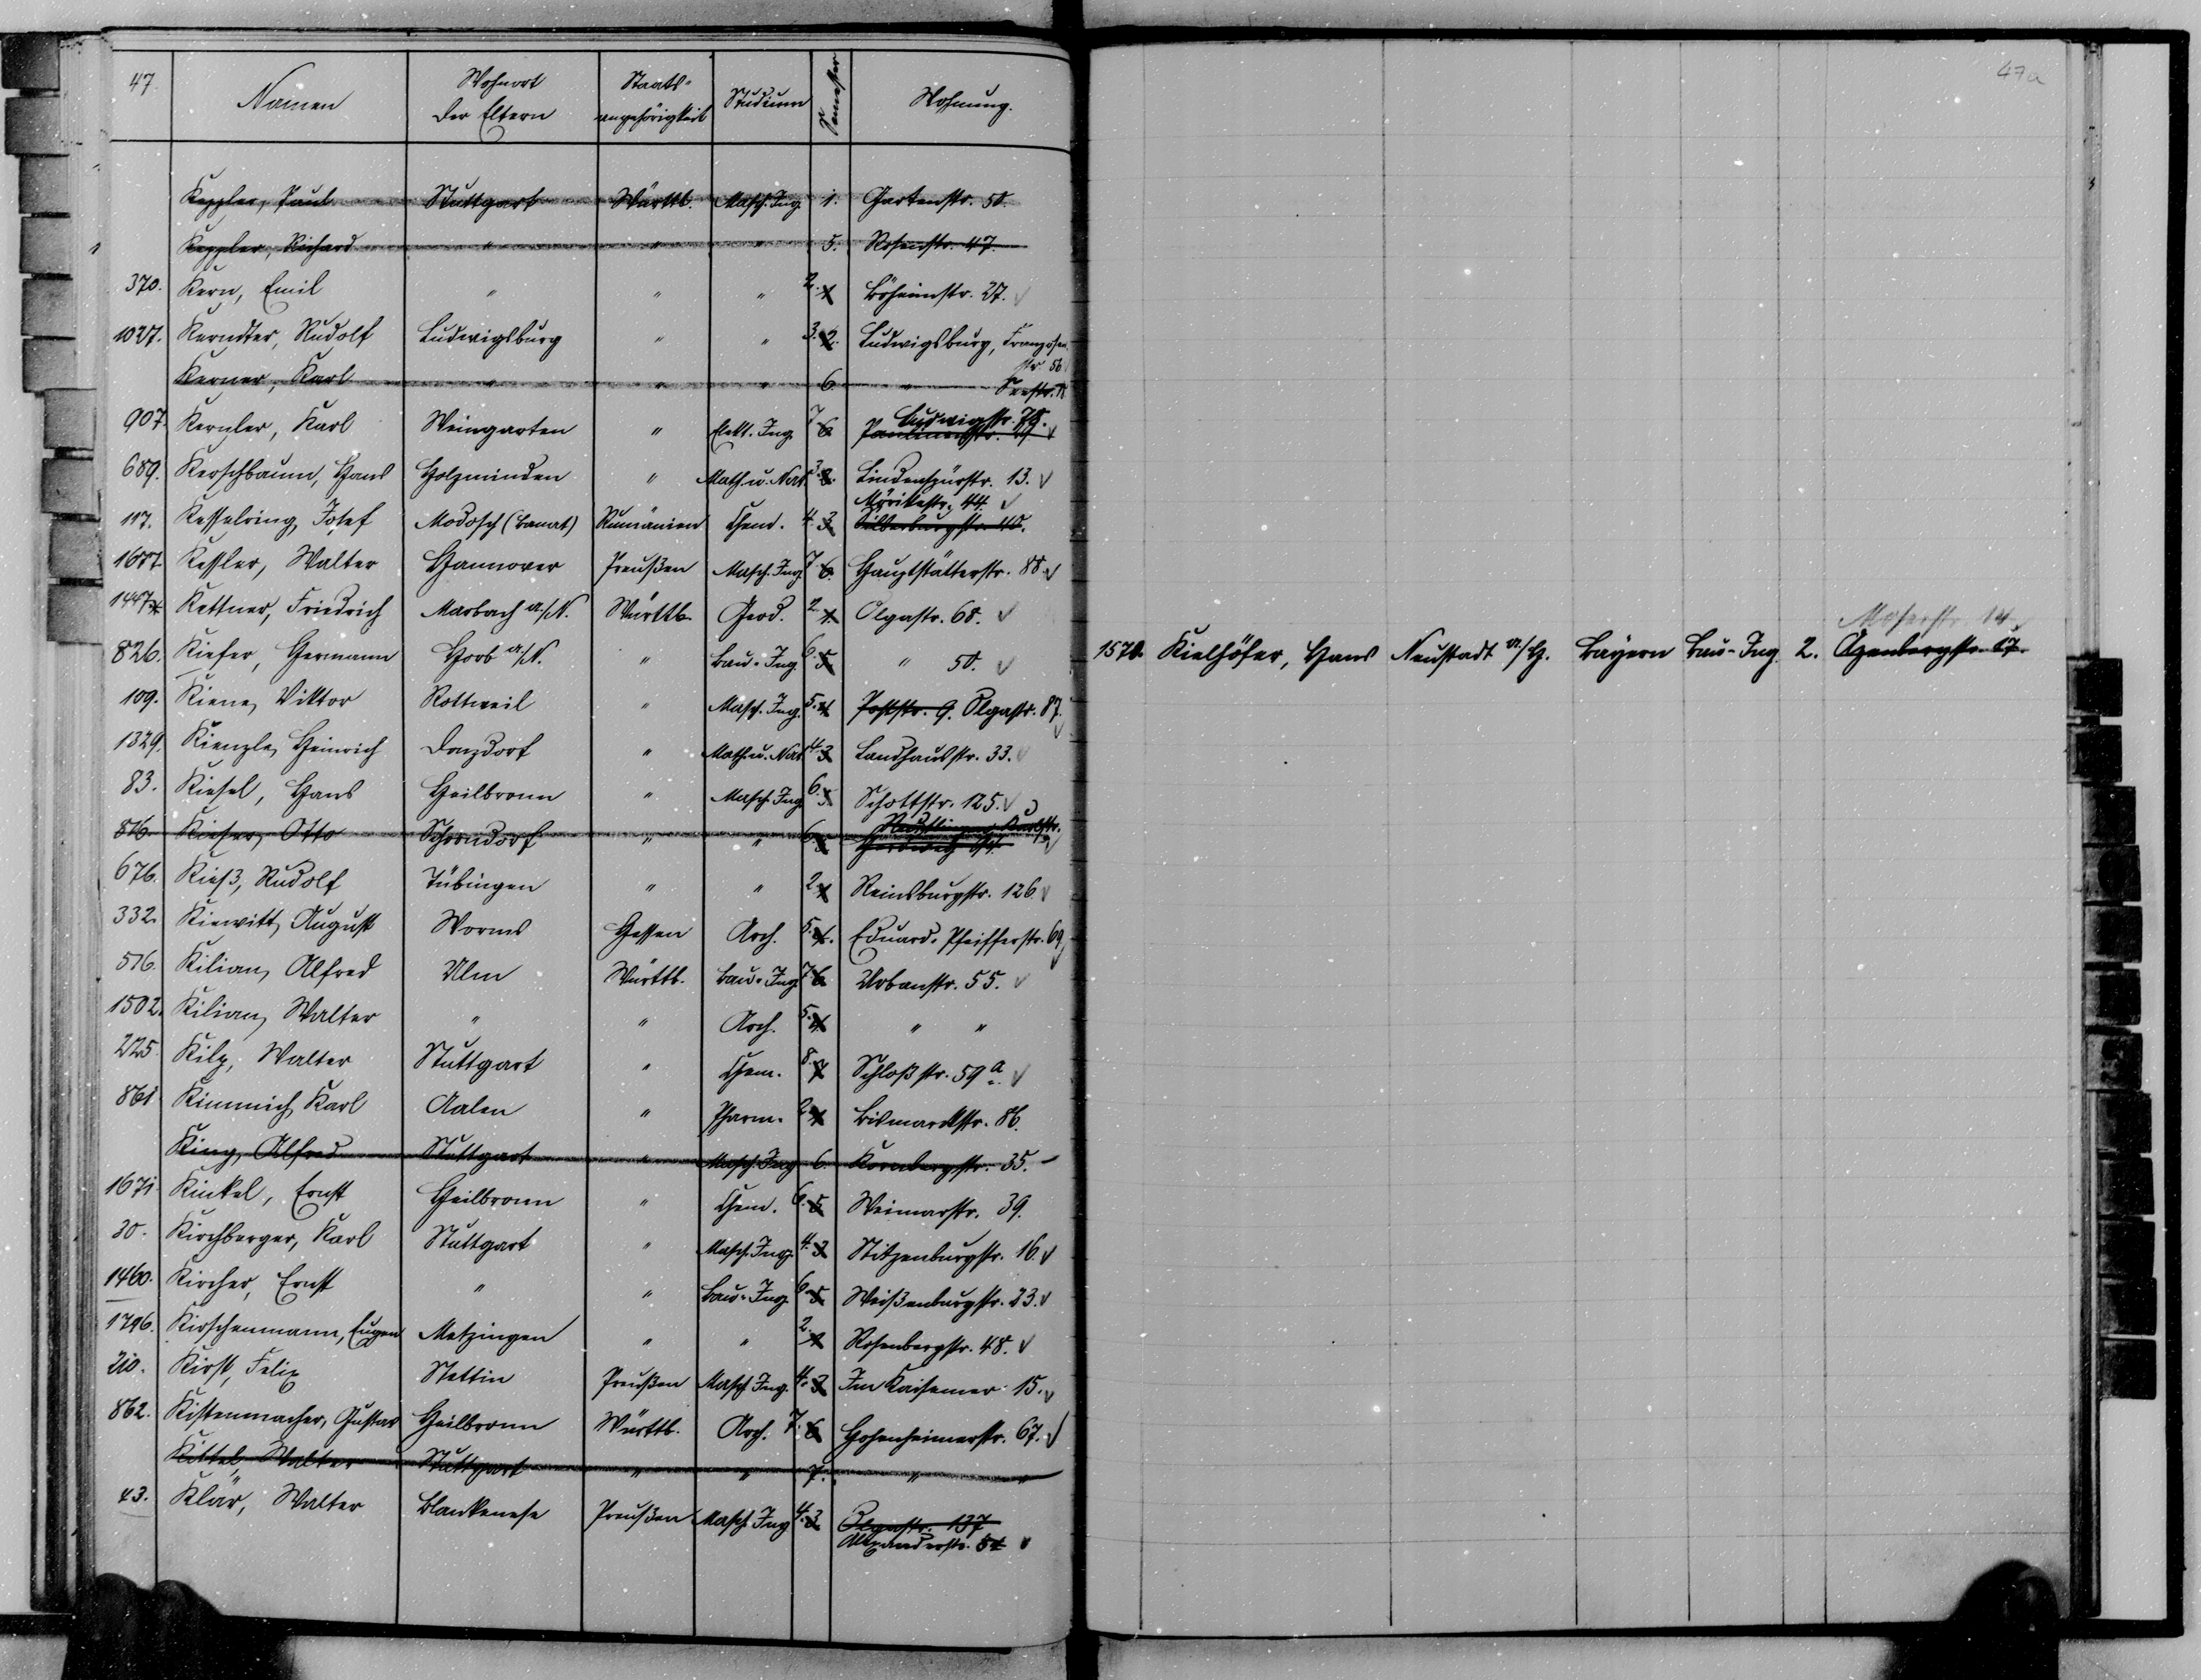 47. Namen Wohnort der Eltern Staats-angehörigkeit Studium Semester Wohnung.
Keppler, Paul Stuttgart Württb. Masch. Ing. 1. Gartenstr. 50.
Keppler, Richard " " " 5. Rosenstr. 47.
370. Kern, Emil " " " 2. 1 Böheimstr. 27. ✓
1027. Kerndter, Rudolf Ludwigsburg " " 3. 2. Ludwigsburg, Französen
str. 56
Kerner, Karl " " " 6. " Seestr.
907. Kernler, Karl Weingarten " Elekt. Ing. 7 6 Ludwigstr. 78.
Paulinenstr. ✓
689. Kerschbaum, Hans Holzminden " Math. u. Nat. 3. Lindenspürstr. 13. ✓
Mörikestr. 44. ✓
117. Kesselring, Josef Modosch (Banat) Rumänien Chem. 4. 3. Silberburgstr. 40.
1677. Kessler, Walter Hannover Preußen Masch. Ing. 7 6. Hauptstätterstr. 88. ✓
1447. Kettner, Friedrich Marbach a./N. Württb. Geod. 2. 1. Olgastr. 68. ✓
826. Kiefer, Hermann Horb a./N. " Bau-Ing. 6. 5 " 50. ✓
109. Kiene, Viktor Rottweil " Masch. Ing. 5. 4 Poststr. 9. Olgastr. 87. ✓
1329. Kienzle, Heinrich Donzdorf " Math. u. Nat. 4. 3 Landhausstr. 33. ✓
83. Kiesel, Hans Heilbronn " Masch. Ing. 6. 5. Schottstr. 125. ✓
816. Kieser, Otto Schorndorf " " 6. 5 Reutlingen, Karlstr.
Herdweg ✓
676. Kieß, Rudolf Tübingen " " 2. 1 Reinsburgstr. 126. ✓
332. Kiewitt, August Worms Hessen Arch. 5. 4. Eduard-Pfeifferstr. 69. ✓
516. Kilian, Alfred Ulm Württb. Bau-Ing. 7. 6 Urbanstr. 55. ✓
1502. Kilian, Walter " " Arch. 5. 4 " "
225. Kilp, Walter Stuttgart " Chem. 8. 7 Schloßstr. 59 a. ✓
861 Kimmich, Karl Aalen " Pharm. 2. 1 Bismarckstr. 86.
King, Alfred Stuttgart " Masch. Ing. 6. Kornbergstr. 35.
1671 Kinkel, Ernst Heilbronn " Chem. 6. 5 Weimarstr. 39.
30. Kirchberger, Karl Stuttgart " Masch. Ing. 4. 3 Stitzenburgstr. 16. ✓
1460. Kircher, Ernst " " Bau-Ing. 6 5 Weißenburgstr. 23. ✓
1796. Kirschenmann, Eugen Metzingen " " 2. 1 Rosenbergstr. 48. ✓
210. Kirst, Felix Stettin Preußen Masch. Ing. 4. 3 Im Kaisemer 15. ✓
862. Kistenmacher, Gustav Heilbronn Württb. Arch. 7. 6 Hohenheimerstr. 67. ✓
Kittel, Walter Stuttgart " " 7. " "
43. Klär, Walter Blankenese Preußen Masch. Ing. 4. 3. Olgastr. 137
Alexanderstr. 54 ✓
47a
Moserstr. 14.
1570. Kielhöfer, Hans Neustadt a./H. Bayern Bau-Ing. 2. Azenbergstr. 17.